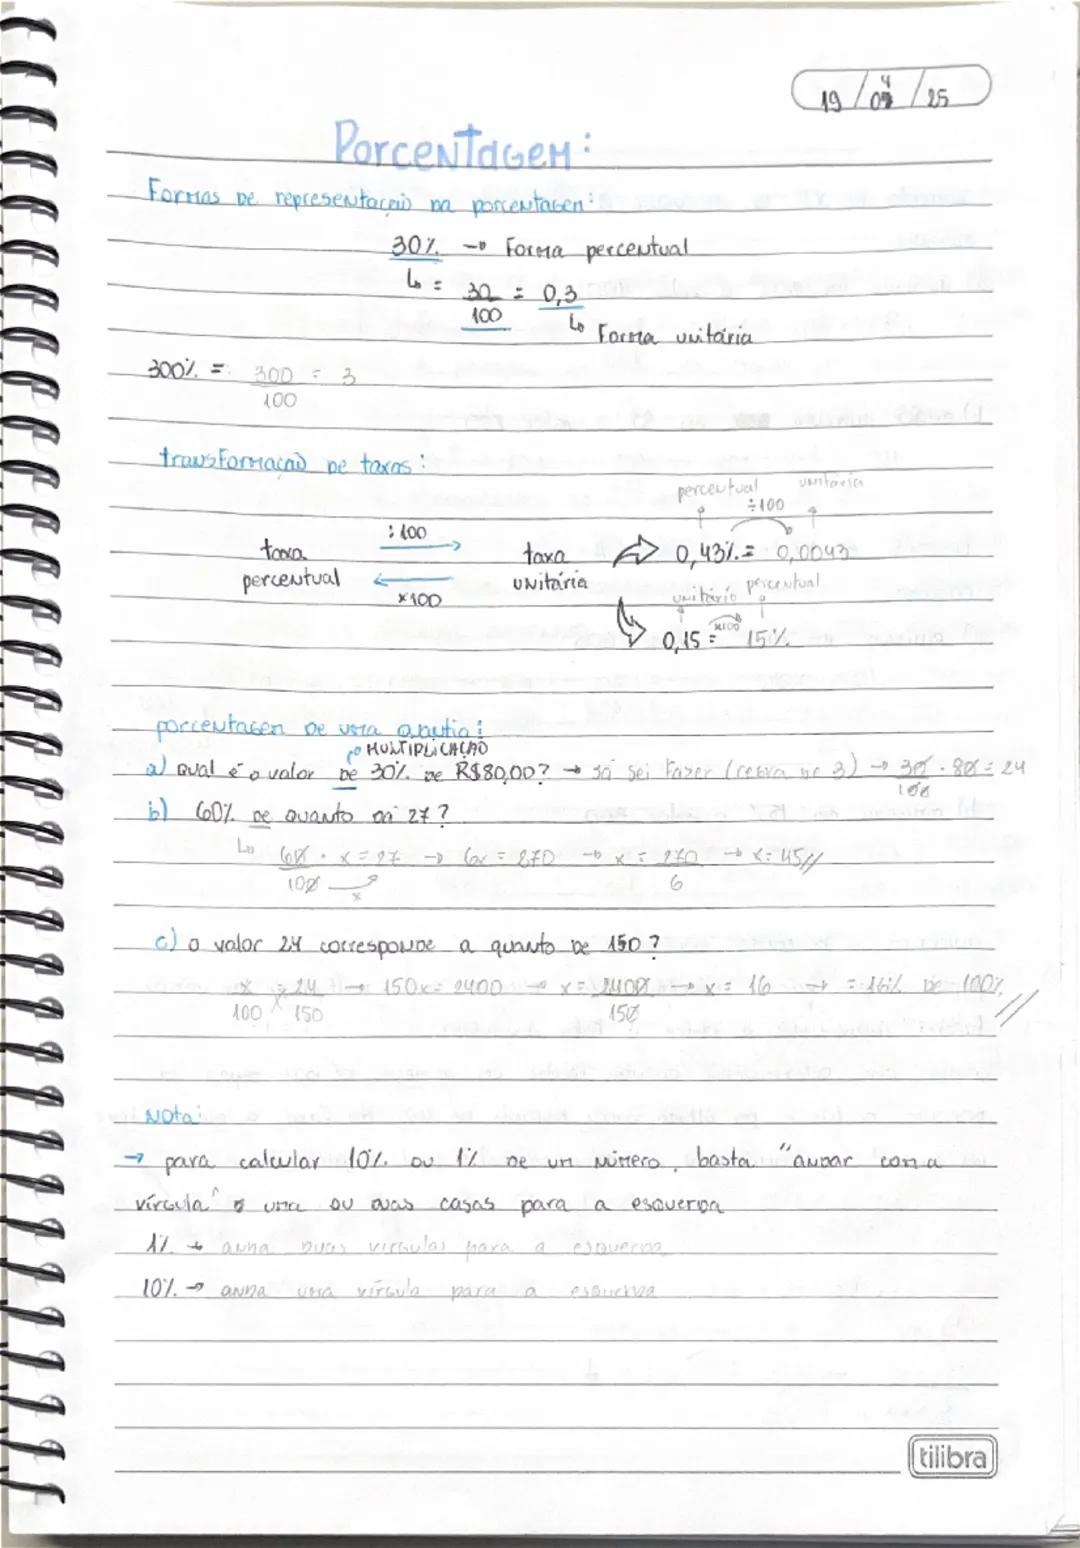 19/04/25
Porcentagem:
Formas de representação da porcentagem:
30% → Forma percentual
↳ = 30/100 = 0,3
↳ Forma unitária
300% = 300/100 = 3
transformação de taxas:
percentual ÷100 unitária
taxa percentual :100 → taxa unitária ⇒ 0,43% = 0,0043
← ×100
unitário percentual
0,15 = x100 15%
porcentagem de uma quantia:
MULTIPLICAÇÃO
a) Qual é o valor de 30% de R$80,00? → Já sei fazer (regra de 3) → 30/100 · 80 = 24
b) 60% de quanto dá 27?
↳ 60/100 · x = 27 → 6x = 270 → x = 270/6 → x = 45//
c) o valor 24 corresponde a quanto de 150?
x/100 = 24/150 → 150x = 2400 → x = 2400/150 → x = 16 → = 16% de 100%//
Nota:
→ para calcular 10% ou 1% de um número, basta "andar com a
vírgula" uma ou duas casas para a esquerda
1% → anda duas vírgulas para a esquerda
10% → anda uma vírgula para a esquerda
tilibra